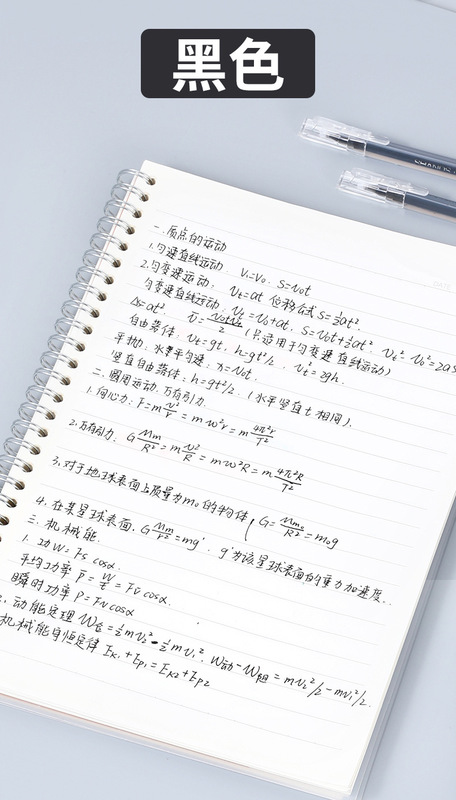 黑色
一.质点的运动
1.匀速直线运动. V₁=V₀. S=V₀t
2.匀变速运动: Vt=at 位移公式 S=½at².
匀变速直线运动: Vt=V₀+at. S=V₀t+½at². Vt²-V₀²=2as
Δs=at². V̄=(V₀+Vt)/2 (只适用于匀变速直线运动)
自由落体. Vt=gt, h=gt²/2. Vt²=2gh.
平抛: 水平匀速: x=V₀t.
竖直自由落体: h=gt²/2. (水平竖直t相同).
二.圆周运动.万有引力.
1.向心力: F=m v²/r = m w²r = m 4π²r/T²
2.万有引力: G Mm/R² = m v²/R = m w²R = m 4π²R/T²
3.对于地球表面上质量为m₀的物体 G=Mm₀/R²=m₀g
4.在某星球表面. G Mm/r²=mg'. g'为该星球表面的重力加速度.
三.机械能.
1.功 W=Fs cosα.
平均功率 P=W/t=Fv cosα.
瞬时功率 P=Fv cosα
动能定理 W合=½mv₂²-½mv₁². W动-W阻=mv₂²/2-mv₁²/2.
机械能守恒定律 Eₖ₁+Eₚ₁=Eₖ₂+Eₚ₂